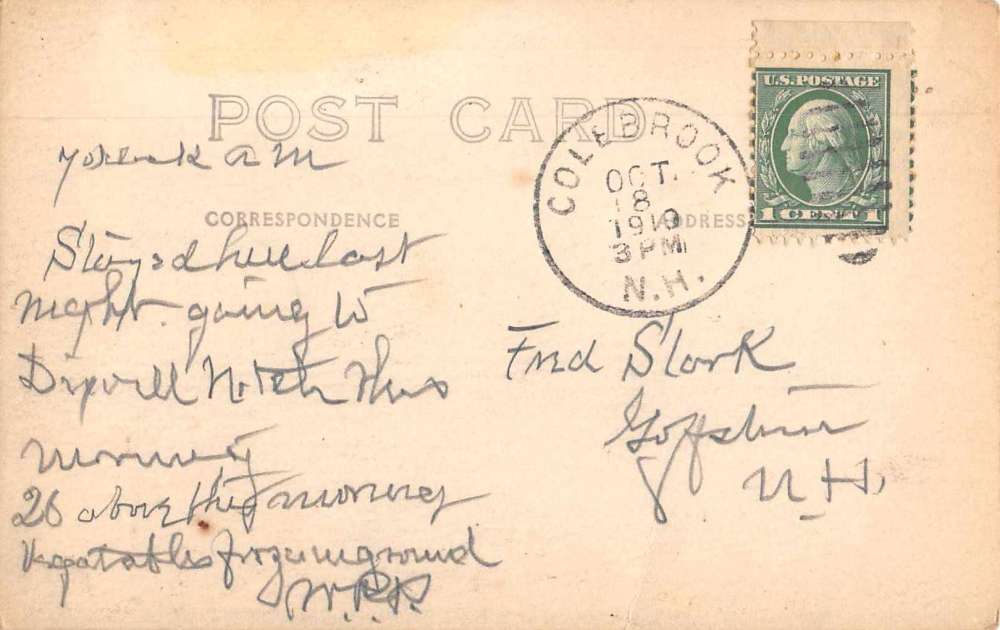 POST CARD
U.S. POSTAGE
1 CENT 1
COLEBROOK
OCT.
18
3 PM
N.H.
AM
CORRESPONDENCE
ADDRESS
Stayed here last
night going to
Dixvill Notch this
morning
26 above this morning
Vegatables frozen in ground
W.P.P.
Fred Stark
Goffstown
N H.